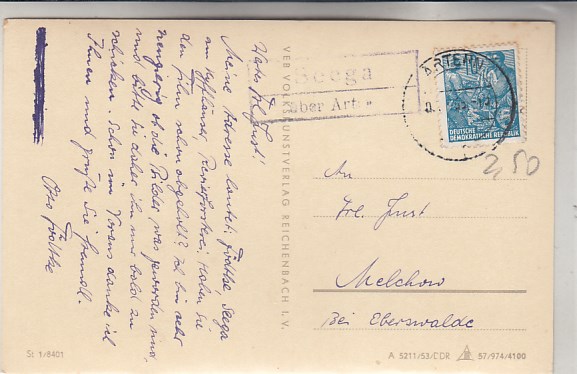 Meine Adresse lautet: Seega
am Kyffhäuser, Haben Sie
den Film schon abgeholt? Ich bin sehr
neugierig ob die Bilder was geworden sind,
und bitte Sie daher sie mir bald zu
schicken. Schon im Voraus danke ich
Ihnen und grüße Sie freundl.
Otto
VEB VOLKSKUNSTVERLAG REICHENBACH I. V.
Seega
über Artern
ARTERN
DEUTSCHE
DEMOKRATISCHE REPUBLIK
2,50
An
Frl. Just
Melchow
Bei Eberswalde
St 1/8401
A 5211/53/DDR 57/974/4100